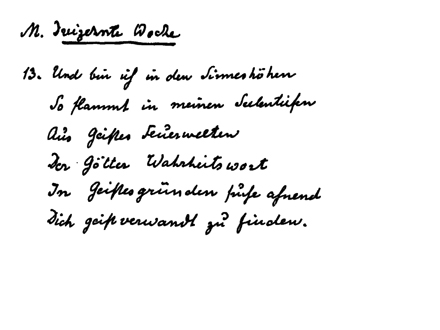 M. Dreizehnte Woche
13. Und bin ich in den Sinneshöhen
So flammt in meinen Seelentiefen
Aus Geistes Feuerwelten
Der Götter Wahrheitswort
In Geistesgründen suche ahnend
Dich geistverwandt zu finden.